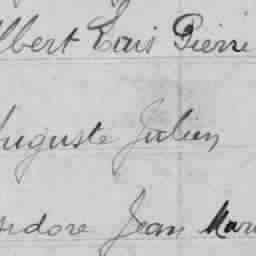 lbert Louis Pierre
Auguste Julien
sidore Jean Mari